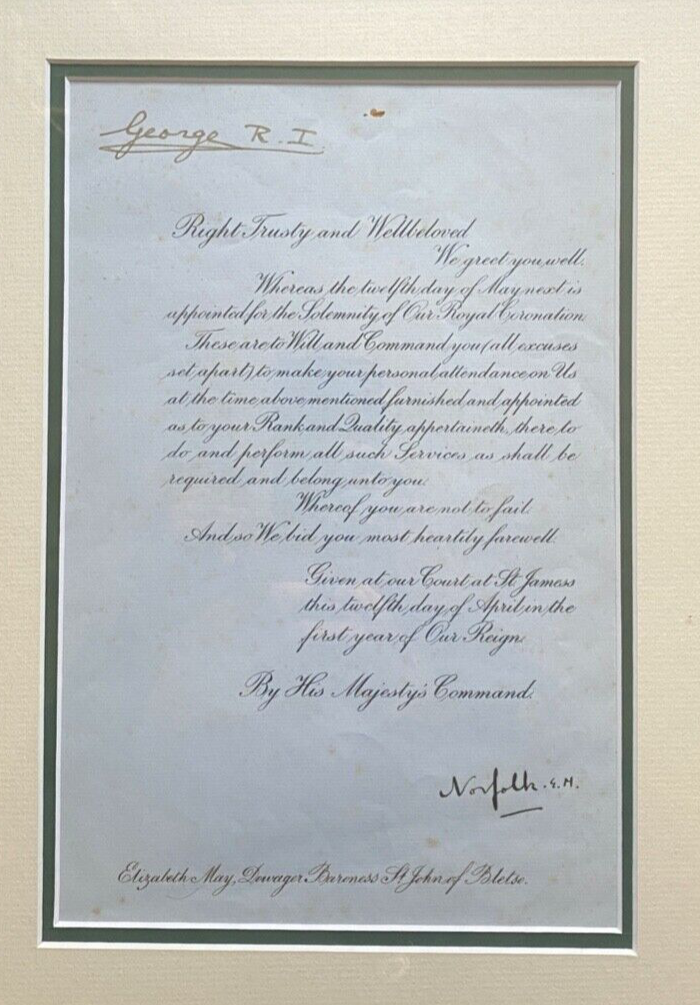 George R. I.
Right Trusty and Wellbeloved
We greet you well.
Whereas the twelfth day of May next is
appointed for the Solemnity of Our Royal Coronation
These are to Will and Command you (all excuses
set apart) to make your personal attendance on Us
at the time above mentioned furnished and appointed
as to your Rank and Quality appertaineth, there to
do and perform all such Services as shall be
required and belong unto you.
Whereof you are not to fail.
And so We bid you most heartily farewell.
Given at our Court at St. James's
this twelfth day of April in the
first year of Our Reign.
By His Majesty's Command.
Norfolk. E.M.
Elizabeth May, Dowager Baroness St John of Bletso.